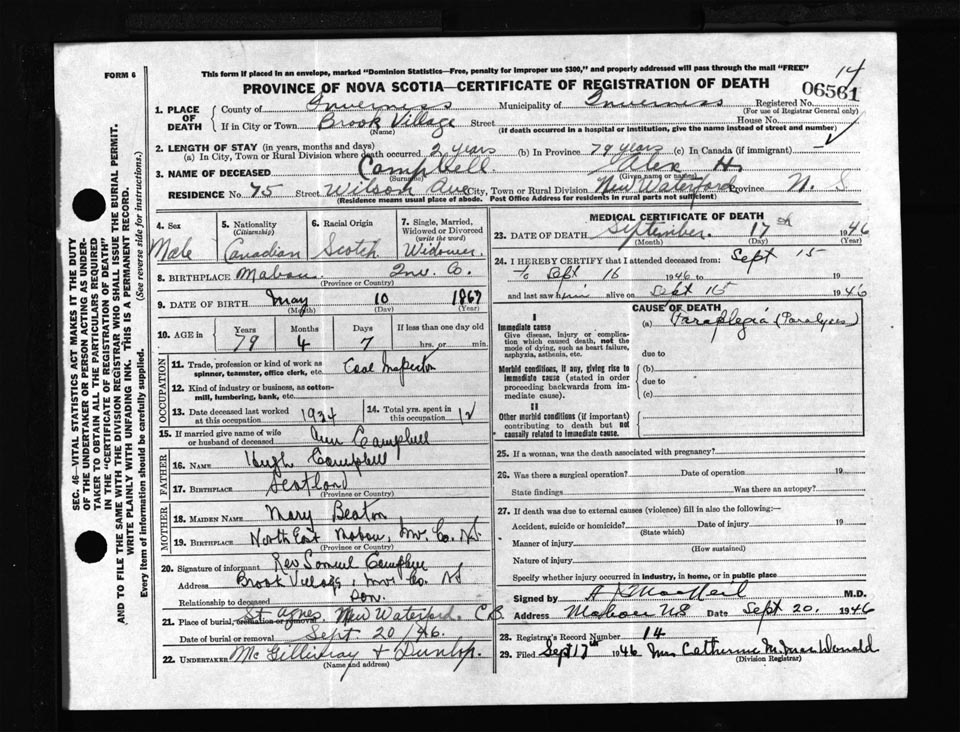 This form if placed in an envelope, marked "Dominion Statistics—Free, penalty for improper use $300," and properly addressed will pass through the mail "FREE"
14
FORM 6
PROVINCE OF NOVA SCOTIA—CERTIFICATE OF REGISTRATION OF DEATH
06561
1. PLACE OF DEATH County of Inverness Municipality of Inverness Registered No.
(For use of Registrar General only)
If in City or Town Brook Village Street House No.
(Name) (If death occurred in a hospital or institution, give the name instead of street and number)
2. LENGTH OF STAY (in years, months and days)
(a) In City, Town or Rural Division where death occurred 2 years (b) In Province 79 years (c) In Canada (if immigrant)
3. NAME OF DECEASED Campbell Alex H.
(Surname) (Given name or names)
RESIDENCE No. 75 Street Wilson Ave City, Town or Rural Division New Waterford Province N. S
(Residence means usual place of abode. Post Office Address for residents in rural parts not sufficient)
4. Sex Male
5. Nationality (Citizenship) Canadian
6. Racial Origin Scotch
7. Single, Married, Widowed or Divorced (write the word) Widower
8. BIRTHPLACE Mabou Inv. Co.
(Province or Country)
9. DATE OF BIRTH May 10 1867
(Month) (Day) (Year)
10. AGE in Years 79 Months 4 Days 7 If less than one day old hrs. or min.
OCCUPATION
11. Trade, profession or kind of work as spinner, teamster, office clerk, etc. Coal Inspector
12. Kind of industry or business, as cotton-mill, lumbering, bank, etc.
13. Date deceased last worked at this occupation 1934
14. Total yrs. spent in this occupation 12
15. If married give name of wife or husband of deceased Ann Campbell
FATHER
16. NAME Hugh Campbell
17. BIRTHPLACE Scotland
(Province or Country)
MOTHER
18. MAIDEN NAME Mary Beaton
19. BIRTHPLACE North East Mabou, Inv. Co. NS
(Province or Country)
20. Signature of informant Rev Samuel Campbell
Address Brook Village, Inv. Co. NS
Relationship to deceased son.
21. Place of burial, cremation or removal St Agnes New Waterford. C.B.
Date of burial or removal Sept. 20/46.
22. UNDERTAKER McGillivray & Dunlop.
(Name and address)
MEDICAL CERTIFICATE OF DEATH
23. DATE OF DEATH September 17th 1946
(Month) (Day) (Year)
24. I HEREBY CERTIFY that I attended deceased from: Sept 15
to Sept 16 1946 to 19
and last saw him alive on Sept 15 1946
CAUSE OF DEATH
I
Immediate cause
Give disease, injury or complication which caused death, not the mode of dying, such as heart failure, asphyxia, asthenia, etc.
(a) Paraplegia (Paralyses)
due to
Morbid conditions, if any, giving rise to immediate cause (stated in order proceeding backwards from immediate cause).
(b)
due to
(c)
II
Other morbid conditions (if important) contributing to death but not causally related to immediate cause.
25. If a woman, was the death associated with pregnancy?
26. Was there a surgical operation? Date of operation 19
State findings Was there an autopsy?
27. If death was due to external causes (violence) fill in also the following:—
Accident, suicide or homicide? Date of injury 19
(State which)
Manner of injury
(How sustained)
Nature of injury
Specify whether injury occurred in industry, in home, or in public place
Signed by MacNeil M.D.
Address Mabou NS Date Sept 20. 1946
28. Registrar's Record Number 14
29. Filed Sept 17th 1946 Mrs Catherine M. MacDonald
(Division Registrar)
SEC. 46—VITAL STATISTICS ACT MAKES IT THE DUTY
OF THE UNDERTAKER OR PERSON ACTING AS UNDER-
TAKER TO OBTAIN ALL THE PARTICULARS REQUIRED
IN THE "CERTIFICATE OF REGISTRATION OF DEATH"
AND TO FILE THE SAME WITH THE DIVISION REGISTRAR WHO SHALL ISSUE THE BURIAL PERMIT.
WRITE PLAINLY WITH UNFADING INK. THIS IS A PERMANENT RECORD.
Every item of information should be carefully supplied. (See reverse side for instructions.)